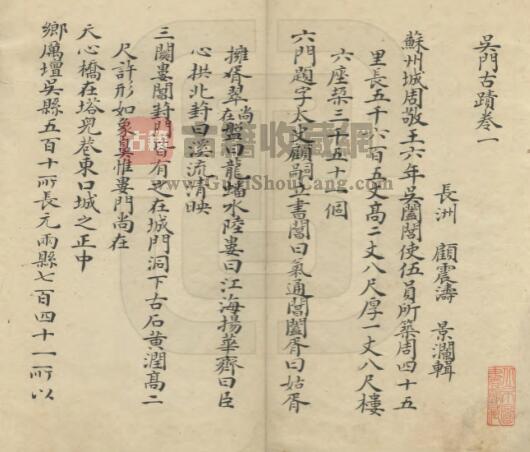 吳門古蹟卷一
長洲 顧震濤 景瀾輯
蘇州城周敬王六年吳闔閭使伍員所築周四十五
里長五千六百五丈高二丈八尺厚一丈八尺樓
六座垜三千五十一個
六門題字太史顧嗣立書閶曰氣通閶闔胥曰姑胥
擁翠尚在盤曰龍蟠水陸婁曰江海揚華齊曰臣
心拱北葑曰溪流清映
三關婁閶葑門皆有之在城門洞下古石黃潤高二
尺許形如象鼻惟婁門尚在
天心橋在塔兒巷東口城之正中
鄉厲壇吳縣五百十一所長元兩縣七百四十一所以
古籍
古籍收藏网
www.GujiShouCang.com